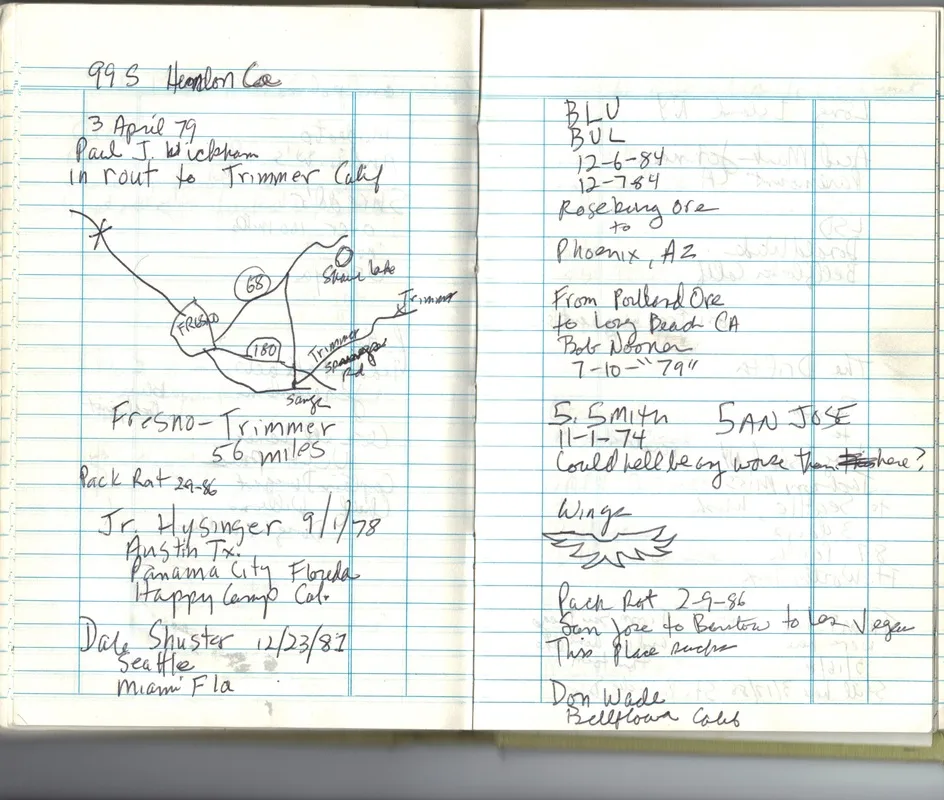 99 S Herndon Cal
3 April 79
Paul J. Wickham
in rout to Trimmer Calif
68
Shaver Lake
Trimmer
FRESNO
180
Trimmer
Rd
Sanger
Fresno-Trimmer
56 miles
Pack Rat 2-9-86
Jr. Hysinger 9/1/78
Austin Tx.
Panama City Floreda
Happy Camp Cal.
Dale Shuster 12/23/81
Seattle
Miami Fla
BLU
BUL
12-6-84
12-7-84
Roseburg Ore
to
Phoenix, AZ
From Portland Ore
to Long Beach CA
Bob Nooner
7-10-"79"
S. Smith SAN JOSE
11-1-74
Could hell be any worse than here?
Wings
Pack Rat 2-9-86
San Jose to Barstow to Las Vegas
This place sucks
Don Wade
Bellflower Calif